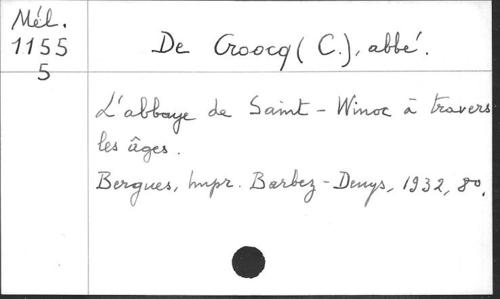 Mél.
1155
5
De Croocq (C.), abbé.
L'abbaye de Saint-Winoc à travers
les âges.
Bergues, Impr. Barbez-Denys, 1932, 8º.